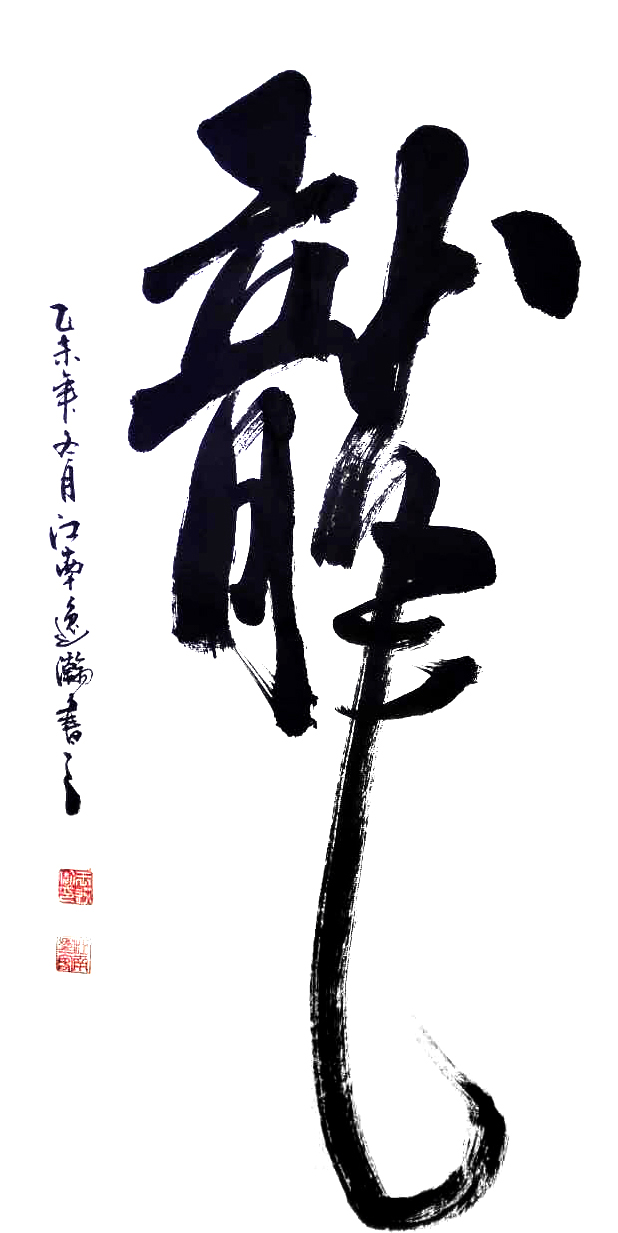 龍
乙未年冬月江南逸瀚書之